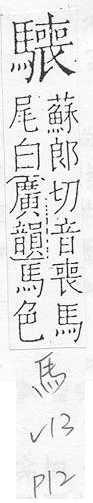 䮲
蘇郎切音喪馬
尾白廣韻馬色
馬
v13
p12